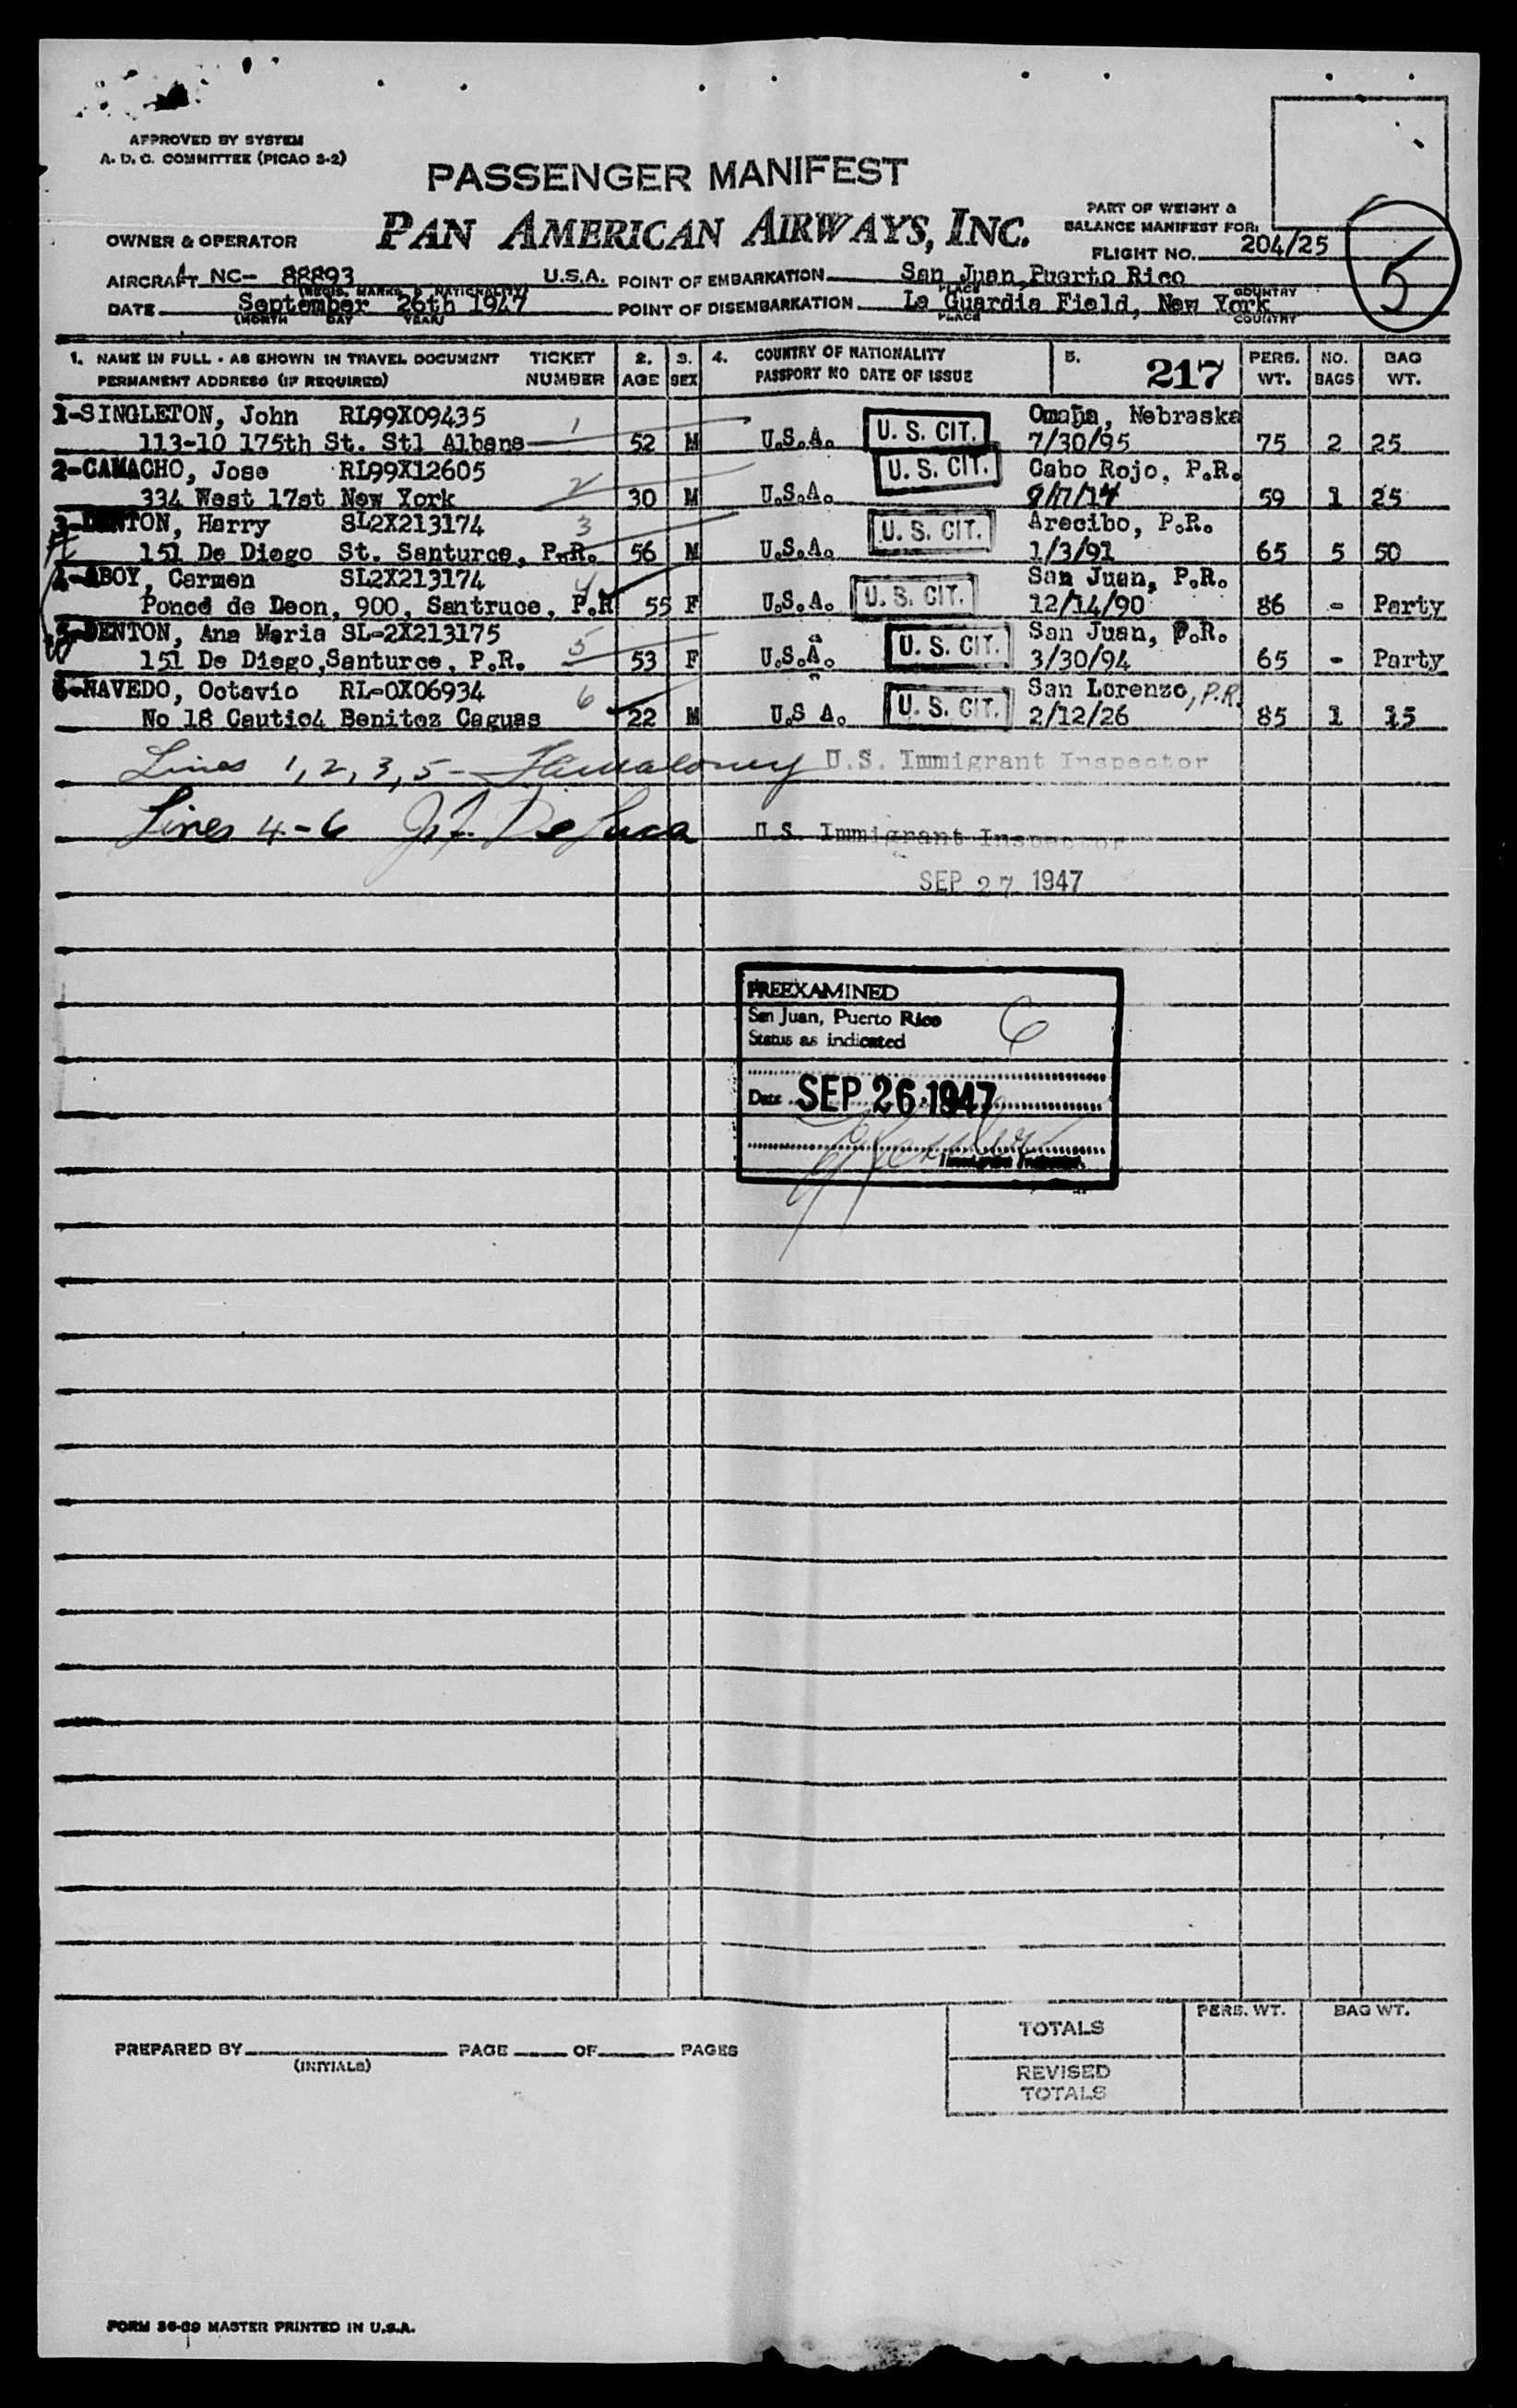 APPROVED BY SYSTEM
A. D. C. COMMITTEE (PICAO S-2)
PASSENGER MANIFEST
PAN AMERICAN AIRWAYS, INC.
OWNER & OPERATOR
PART OF WEIGHT &
BALANCE MANIFEST FOR:
FLIGHT NO. 204/25
5
AIRCRAFT NC- 88893 U.S.A. POINT OF EMBARKATION San Juan, Puerto Rico
(REGIS. MARKS & NATIONALITY) PLACE COUNTRY
DATE September 26th 1947 POINT OF DISEMBARKATION La Guardia Field, New York
(MONTH DAY YEAR) PLACE COUNTRY
1. NAME IN FULL - AS SHOWN IN TRAVEL DOCUMENT TICKET 2. 3. 4. COUNTRY OF NATIONALITY 5. 217 PERS. NO. BAG
PERMANENT ADDRESS (IF REQUIRED) NUMBER AGE SEX PASSPORT NO DATE OF ISSUE WT. BAGS WT.
1-SINGLETON, John RL99X09435 1 U. S. CIT. Omaha, Nebraska
113-10 175th St. Stl Albans 52 M U.S.A. 7/30/95 75 2 25
2-CAMACHO, Jose RL99X12605 2 U. S. CIT. Cabo Rojo, P.R.
334 West 17st New York 30 M U.S.A. 59 1 25
3-DENTON, Harry SL2X213174 3 U. S. CIT. Arecibo, P.R.
151 De Diego St. Santurce, P.R. 56 M U.S.A. 1/3/91 65 5 50
4-ABOY, Carmen SL2X213174 4 U. S. CIT. San Juan, P.R.
Ponce de Deon, 900, Santruce, P.R 55 F U.S.A. 12/14/90 86 - Party
5-DENTON, Ana Maria SL-2X213175 5 U. S. CIT. San Juan, P.R.
151 De Diego, Santurce, P.R. 53 F U.S.A. 3/30/94 65 - Party
6-NAVEDO, Octavio RL-0X06934 6 U. S. CIT. San Lorenzo, P.R.
No 18 Cautio4 Benitez Caguas 22 M U.S A. 2/12/26 85 1 15
Lines 1, 2, 3, 5 - U.S. Immigrant Inspector
Lines 4-6 De Luca U.S. Immigrant Inspector
SEP 27 1947
PREEXAMINED
San Juan, Puerto Rico 6
Status as indicated
Date SEP 26 1947
Immigrant Inspector
TOTALS PERS. WT. BAG WT.
PREPARED BY PAGE OF PAGES
(INITIALS)
REVISED
TOTALS
FORM 36-09 MASTER PRINTED IN U.S.A.